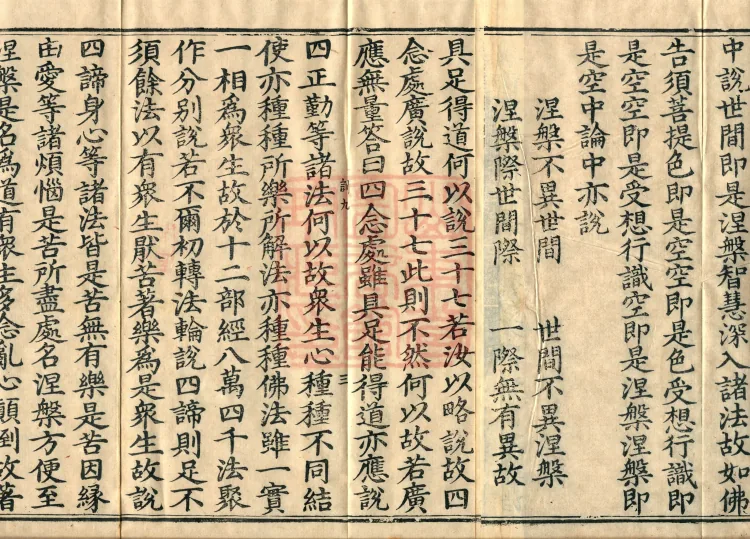 中說世間即是涅槃智慧深入諸法故如佛
告須菩提色即是空空即是色受想行識即
是空空即是受想行識空即是涅槃涅槃即
是空中論中亦說
涅槃不異世間 世間不異涅槃
涅槃際世間際 一際無有異故
具足得道何以說三十七若汝以略說故四
念處廣說故三十七此則不然何以故若廣
應無量答曰四念處雖具足能得道亦應說
四正勤等諸法何以故衆生心種種不同結
使亦種種所樂所解法亦種種佛法雖一實
一相爲衆生故於十二部經八萬四千法聚
作分別說若不爾初轉法輪說四諦則足不
須餘法以有衆生猒苦著樂爲是衆生故說
四諦身心等諸法皆是苦無有樂是苦因縁
由愛等諸煩惱是苦所盡處名涅槃方便至
涅槃是名爲道有衆生多念亂心顛到故著
三